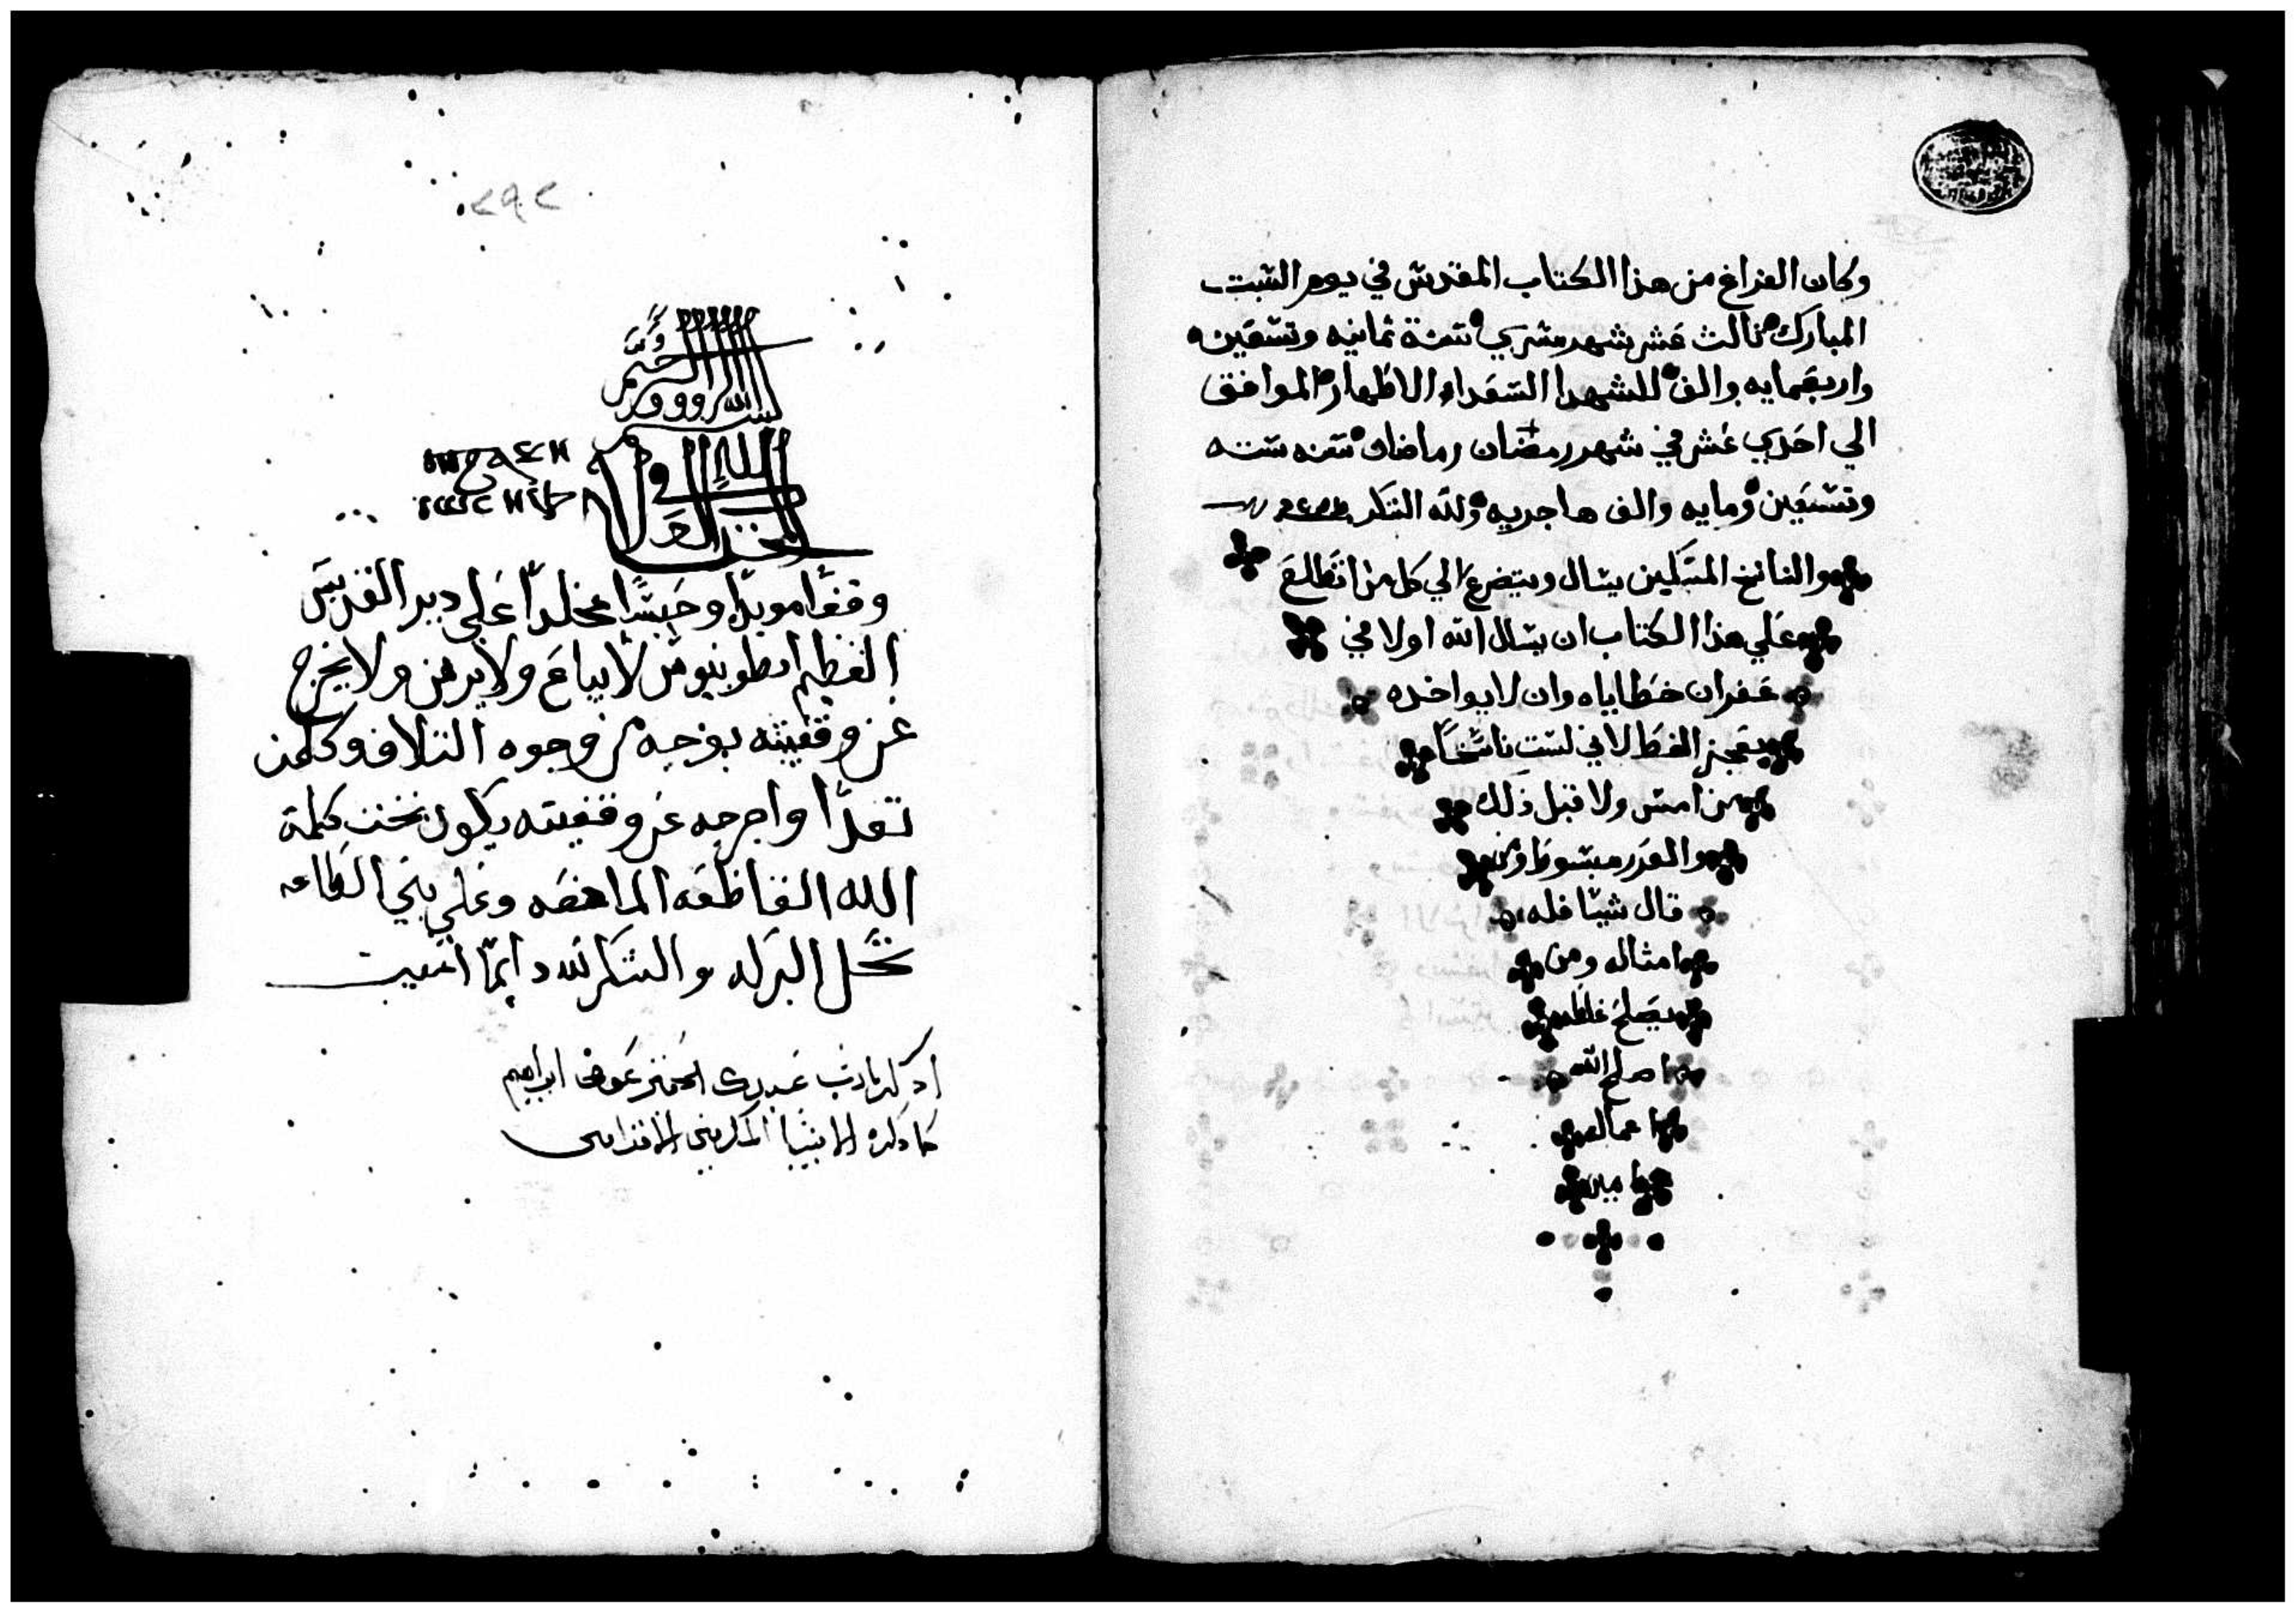 وكان الفراغ من هذا الكتاب المقدس في يوم السبت
المبارك ثالث عشر شهر مسري سنة ثمانيه وتسعين
واربعمايه والف للشهدا السعداء الاطهار الموافق
الي احدي عشر في شهر رمضان رماضان سنه سته
وتسعين ومايه والف هاجريه ولله الشكر
والناسخ المسكين يسال ويتضرع الي كل من اتطلع
علي هذا الكتاب ان يسال الله اولا في
غفران خطاياه وان لا يواخده
بعجز الخط لاني لست ناسخا
من امس ولا قبل ذلك
والعدر مبسوط ومن
قال شيا فله
امثاله ومن
يصلح غلطه
اصلح الله
اعماله
امين
٢٩٢
بسم الله الرووف الرحيم
المجد لله في العلا
وقفا موبدا وحبسا مخلدا علي دير القديس
العظيم انطونيوس لا يباع ولا يرهن ولا يخرج
عن وقفيته بوجه من وجوه التلاف وكلمن
تعدا واخرجه عن وقفيته يكون تحت كلمة
الله القاطعه الماهضه وعلي بني الطاعه
تحل البركه والشكر لله دايما
اذكر يارب عبدك المهتم عوض ابراهيم